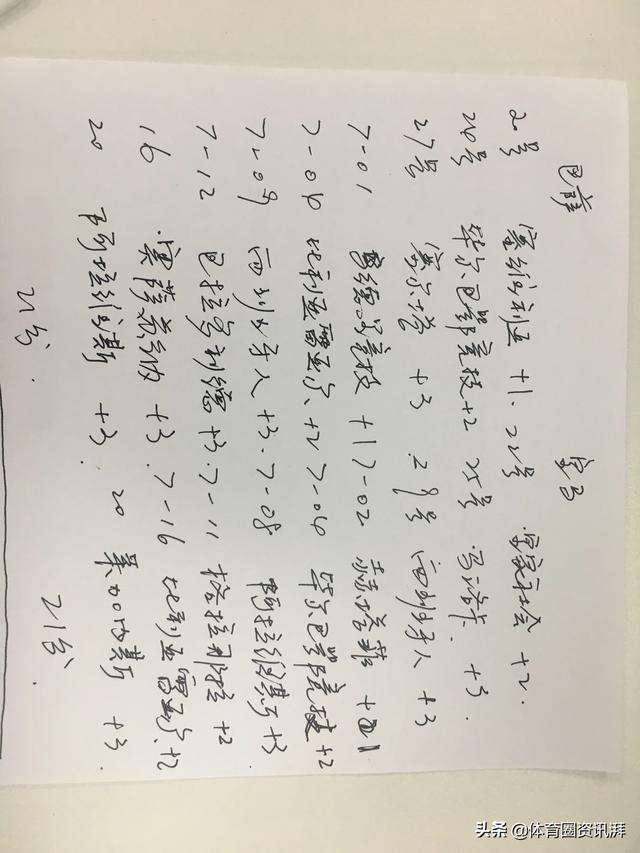 巴萨 皇马
20号 塞维利亚 +1. 22号 皇家社会 +2.
24号 毕尔巴鄂竞技 +2 25号 马洛卡. +3.
27号 塞尔塔 +3. 29号 西班牙人 +3
7-01 马德里竞技 +1 7-02 赫塔菲 +1
7-06 比利亚雷亚尔 +2 7-06 毕尔巴鄂竞技 +2
7-09 西班牙人 +3. 7-08 阿拉维斯 +3
7-12 巴拉多利德 +3. 7-11 格拉那达 +2
16 奥萨苏纳 +3. 7-16 比利亚雷亚尔 +2
20 阿拉维斯 +3. 20 莱加内斯 +3.
21分. 21分.
头条 @体育圈资讯湃